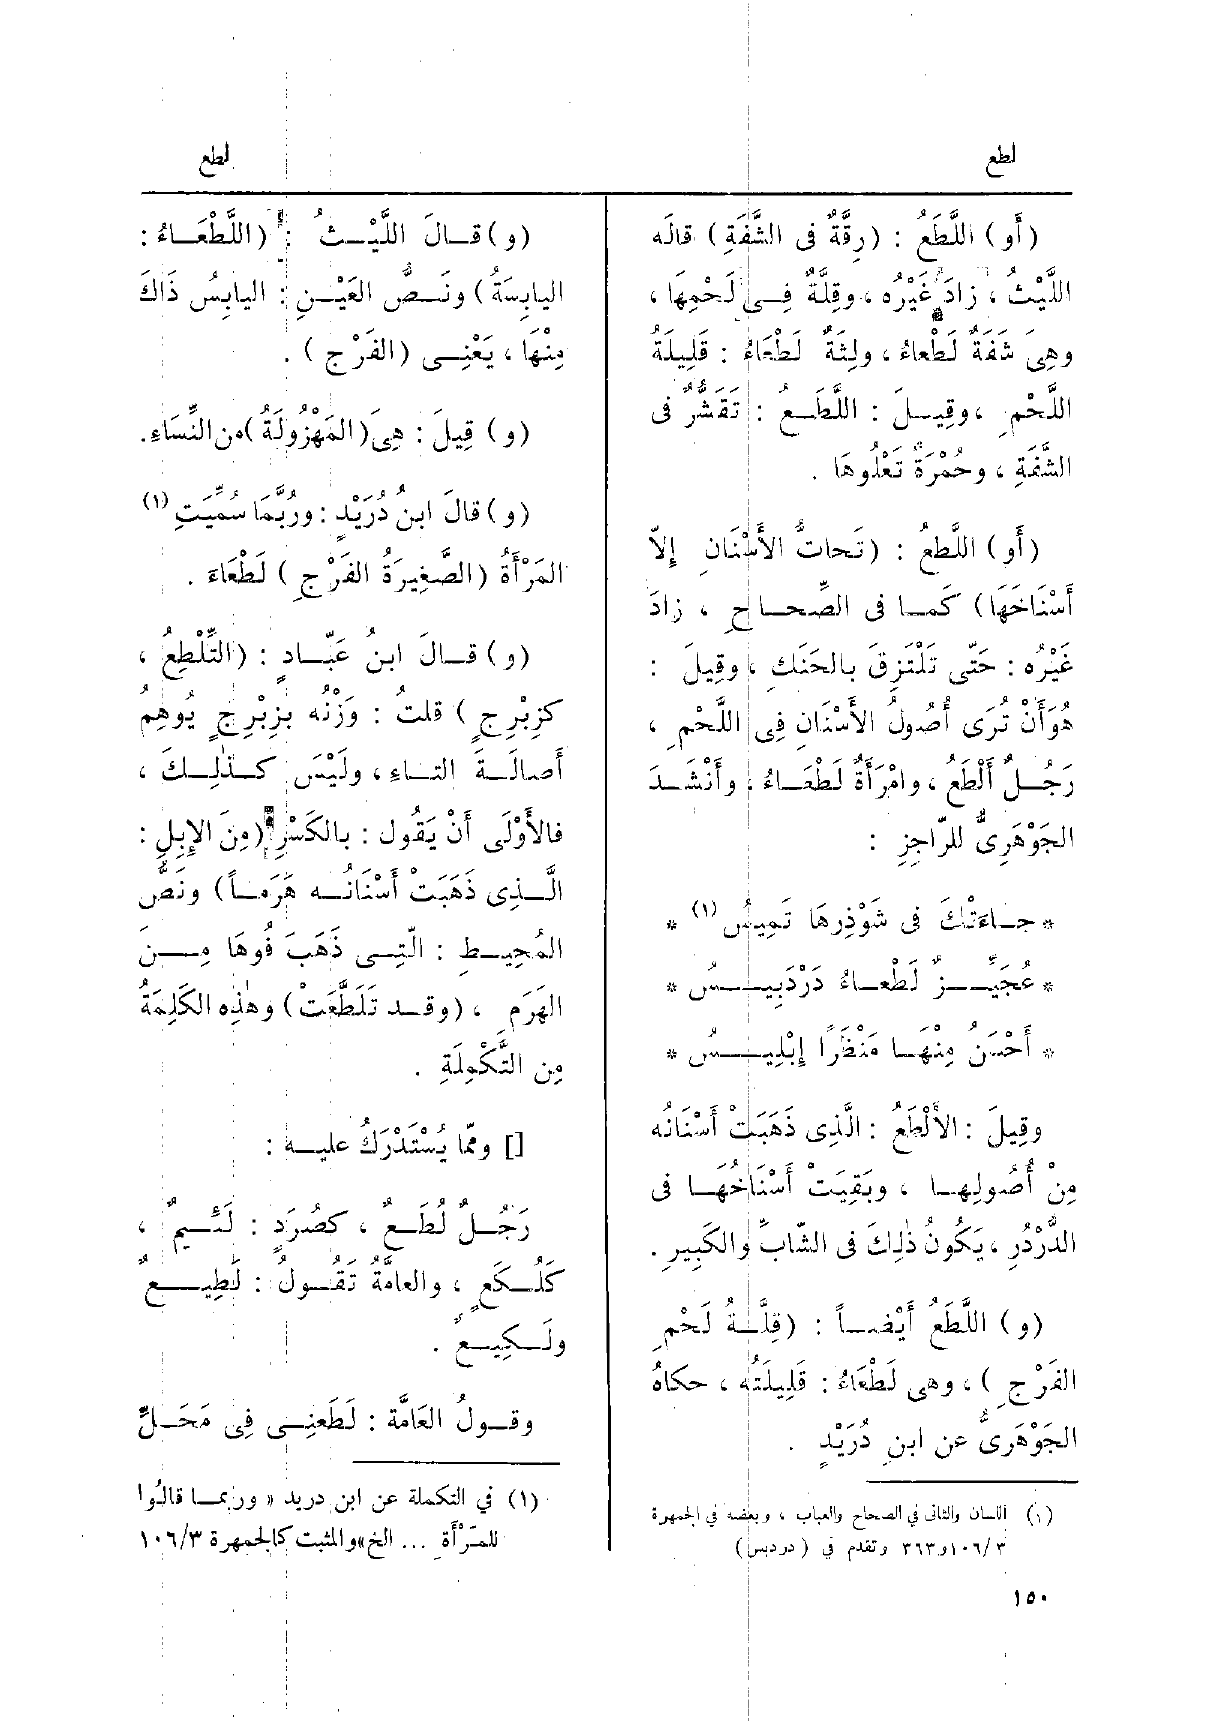 لطع
لطع
(أو) اللَّطَعُ : (رِقَّةٌ فى الشَّفَةِ) قالَه
اللَّيْثُ ، زادَ غَيْرُه ، وقِلَّةٌ فِـى لَحْمِها ،
وهِىَ شَفَةٌ لَطْعاءُ ، ولِثَةٌ لَطْعَاءُ : قَلِيلَةُ
اللَّحْمِ ، وقِيـلَ : اللَّطَـعُ : تَقَشُّرٌ فى
الشَّفَةِ ، وحُمْرَةٌ تَعْلُوهَا .
(أو) اللَّطَعُ : (تَحاتُّ الأَسْنَانِ إلاّ
أَسْنَاخَهَا) كَمـا فى الصِّحـاحِ ، زادَ
غَيْرُه : حَتّى تَلْتَزِقَ بالحَنَكِ ، وقِيلَ :
هُوَ أَنْ تُرَى أُصُولُ الأَسْنَانِ فِى اللَّحْمِ ،
رَجُـلٌ أَلْطَعُ ، وامْرَأَةٌ لَطْعَـاءُ ، وأَنْشَـدَ
الجَوْهَرِىُّ للرّاجِزِ :
* جـاءَتْكَ فى شَوْذَرِهَا تَمِيسُ (١) *
* عُجَيِّـزٌ لَطْعـاءُ دَرْدَبِيـسُ *
* أَحْسَنُ مِنْهَـا مَنْظَرًا إبْلِيـسُ *
وقِيلَ : الأَلْطَعُ : الَّذِى ذَهَبَتْ أَسْنَانُه
مِنْ أُصُولِهـا ، وبَقِيَتْ أَسْنَاخُهَـا فى
الدُّرْدُرِ ، يَكُونُ ذٰلِكَ فى الشّابِّ والكَبِيرِ .
(و) اللَّطَعُ أَيْضـاً : (قِلَّـةُ لَحْمِ
الفَرْجِ ) ، وهى لَطْعَاءُ : قَلِيلَتُه ، حكاهُ
الجَوْهَرِىُّ عن ابنِ دُرَيْدٍ .
(١) اللسان والثانى في الصحاح والعباب ، وبعضه في الجمهرة
٣ /١٠٦ و٣٦٣ وتقدم في (دردبس)
(و) قـالَ اللَّيْـثُ : (اللَّطْعَـاءُ :
اليابِسَةُ) ونَـصُّ العَيْـنِ : اليابِسُ ذَاكَ
مِنْهَا ، يَعْنِـى (الفَرْجِ ) .
(و) قِيلَ : هِىَ (المَهْزُولَةُ) من النِّسَاءِ .
(و) قالَ ابنُ دُرَيْدٍ : ورُبَّمَا سُمِّيَتِ (١)
المَرْأَةُ (الصَّغِيرَةُ الفَرْجِ ) لَطْعَاءَ .
(و) قـالَ ابنُ عَبّـادٍ : (التِّلْطِعُ ،
كزِبْرِجٍ ) قلتُ : وَزْنُه بزِبْرِجٍ يُوهِمُ
أَصالَـةَ التـاءِ ، ولَيْسَ كـذٰلِـكَ ،
فالأَوْلَى أَنْ يَقُول : بالكَسْرِ (مِنَ الإِبِلِ :
الَّـذِى ذَهَبَتْ أَسْنَانُـه هَرَمـاً) ونَصُّ
المُحِيـطِ : الّتِـى ذَهَبَ فُوهَا مِـنَ
الهَرَمِ ، (وقـد تَلَطَّعَتْ) وهٰذِه الكَلِمَةُ
مِن التَّكْمِلَةِ .
[] وممّا يُسْتَدْرَكُ عليـه :
رَجُـلٌ لُطَـعٌ ، كصُرَدٍ : لَئِـيمٌ ،
كَلُـكَعٍ ، والعامَّةُ تَقُـولُ : لَطِيـعٌ
ولَـكِيـعٌ .
وقـولُ العَامَّة : لَطَعنِـى فِى مَحَـلِّ
(١) في التكملة عن ابن دريد « وربمـا قالُوا
للمَرْأة ... الخ» والمثبت كالجمهرة ٣/١٠٦
١٥٠